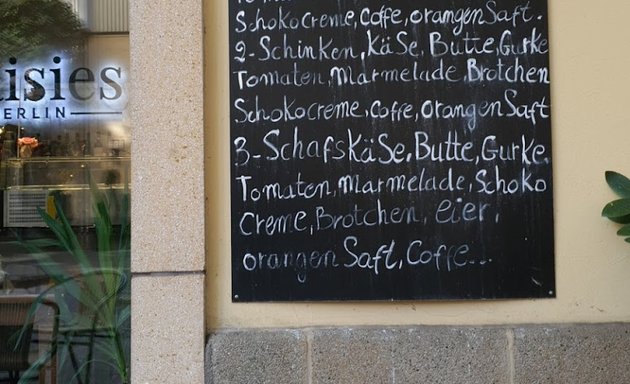 isies
BERLIN
Schokocreme, coffe, orangen Saft.
2-Schinken, KäSe, Butte, Gurke
Tomaten, Marmelade, Brötchen
Schokocreme, coffe, orangen Saft
3-SchafskäSe, Butte, Gurke.
Tomaten, Marmelade, Schoko
Creme, Brötchen, eier,
orangen Saft, Coffe...